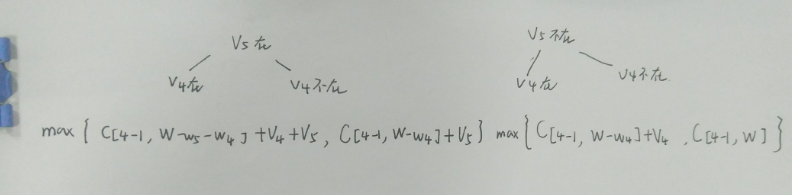 V5在 V5不在
V4在 V4不在 V4在 V4不在
max { C[4-1, W-w5-w4] +V4+V5, C[4-1, W-w4]+V5} max{C[4-1, W-w4]+V4, C[4-1, W]}